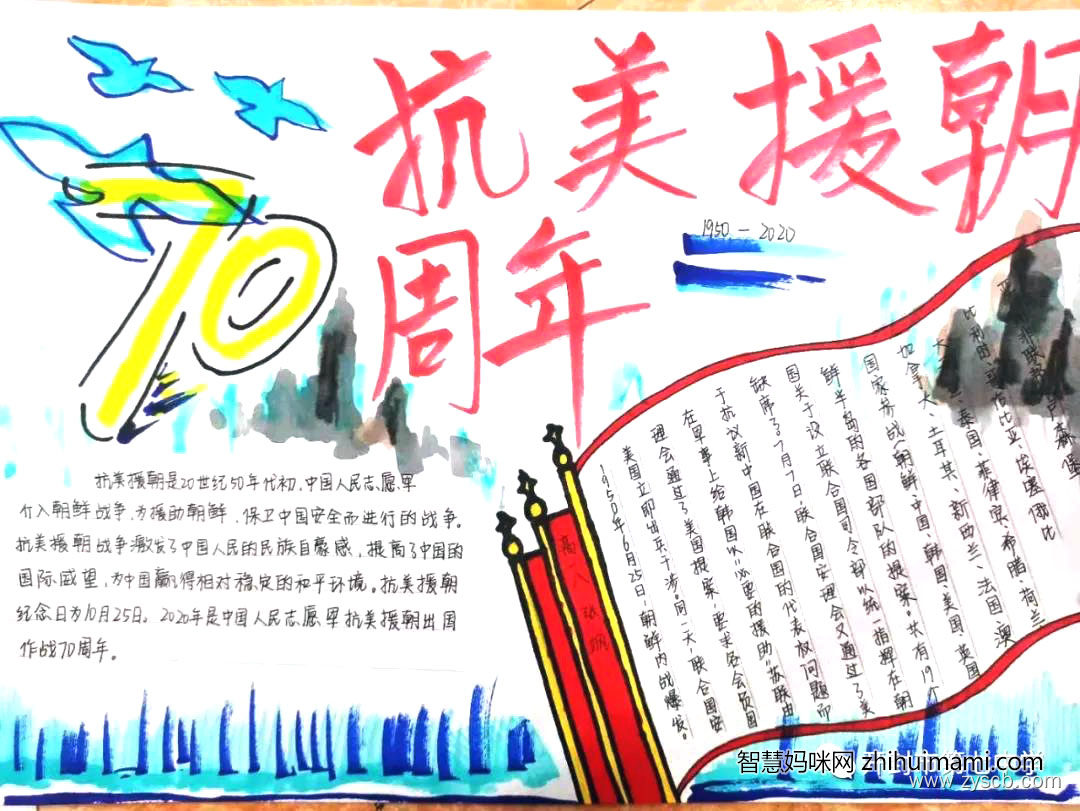 抗美援朝
70
周年
1950-2020
抗美援朝是20世纪50年代初,中国人民志愿军
介入朝鲜战争,为援助朝鲜、保卫中国安全而进行的战争。
抗美援朝战争激发了中国人民的民族自豪感,提高了中国的
国际威望,为中国赢得相对稳定的和平环境。抗美援朝
纪念日为10月25日。2020年是中国人民志愿军抗美援朝出国
作战70周年。
高一八
1950年6月25日,朝鲜内战爆发。
美国立即出兵干涉。同一天,联合国安
理会通过了美国提案,要求各会员国
在军事上给韩国以"必要的援助"苏联由
于抗议新中国在联合国的代表权问题而
缺席了。7月7日,联合国安理会又通过了美
国关于设立联合国司令部以统一指挥在朝
鲜半岛的各国部队的提案。共有19个
国家参战(朝鲜、中国、韩国、美国、英国
加拿大、土耳其、新西兰、法国、澳
大、泰国、菲律宾、希腊、荷兰
比利时、哥伦比亚、埃塞俄比
亚、非联邦、卢森堡
智慧妈咪网 zhihuimami.com
www.zyscb.com